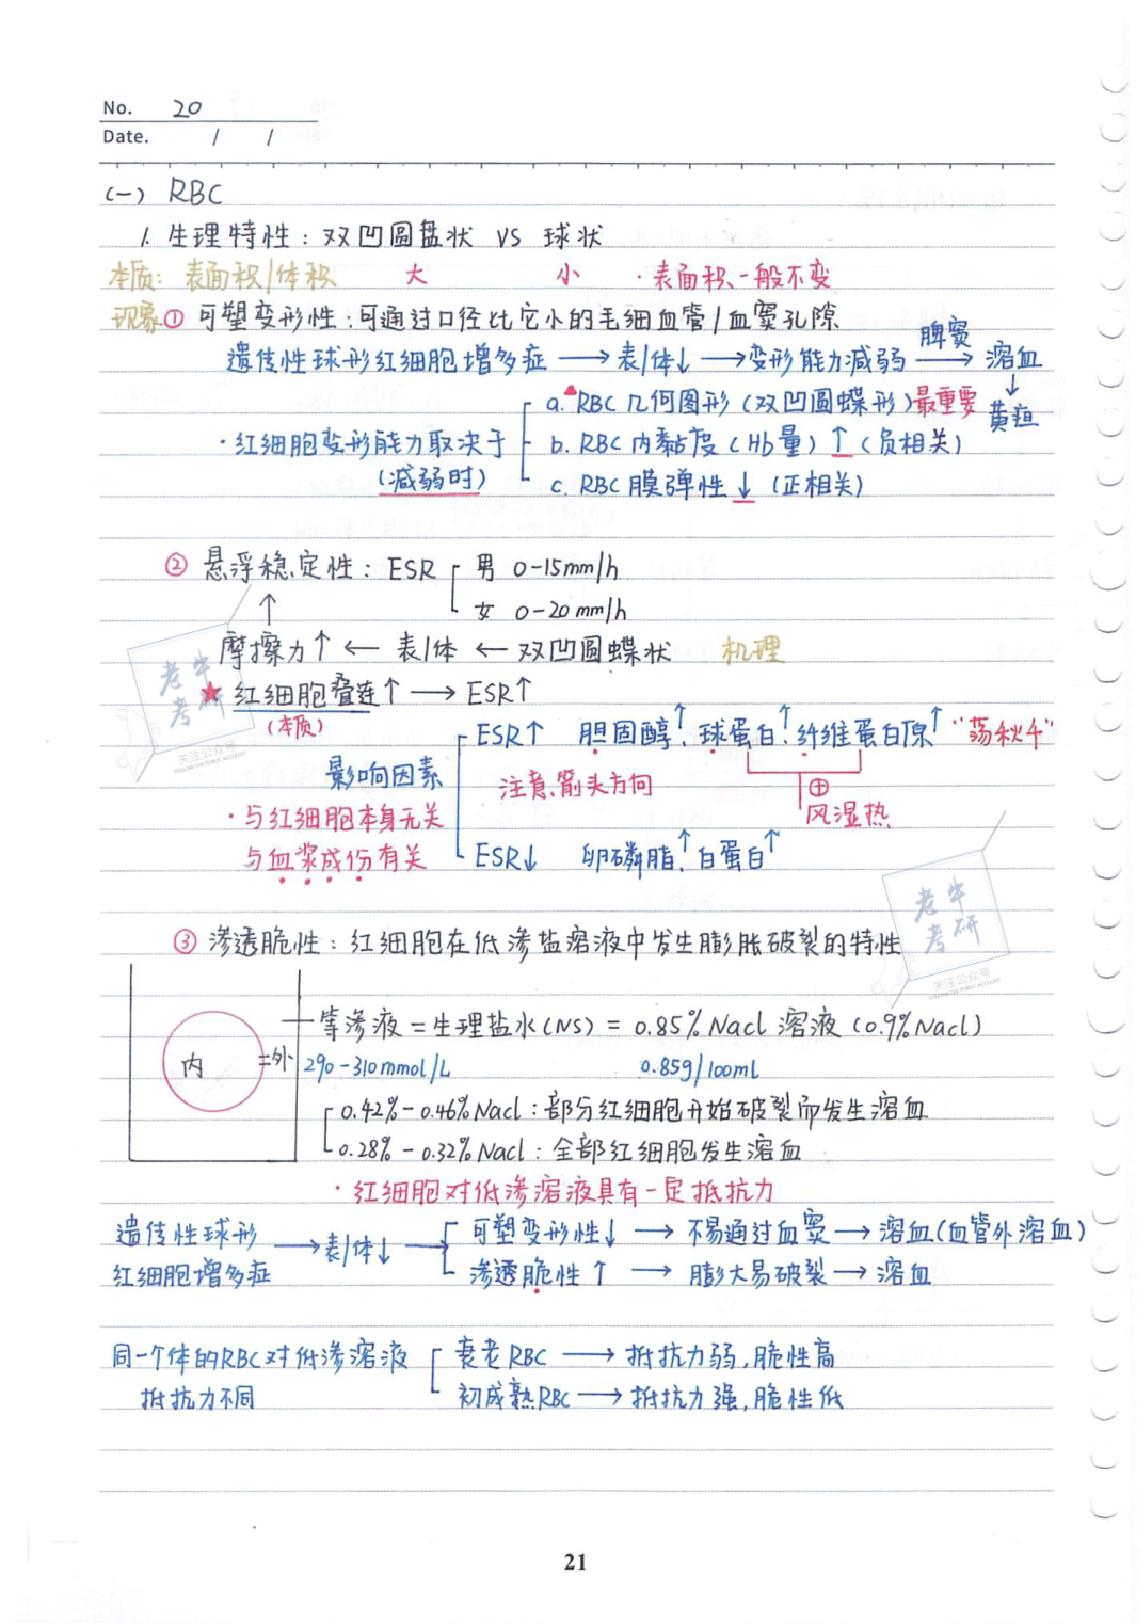 No. 20
Date. / /
(一) RBC
1. 生理特性：双凹圆盘状 VS 球状
本质：表面积/体积 大 小 ·表面积一般不变
现象① 可塑变形性：可通过口径比它小的毛细血管/血窦孔隙
遗传性球形红细胞增多症 → 表/体↓ → 变形能力减弱 脾窦→ 溶血
↓
a. RBC几何图形（双凹圆蝶形）最重要 黄疸
·红细胞变形能力取决于 b. RBC内黏度（Hb量）↑（负相关）
(减弱时) c. RBC膜弹性↓（正相关）
② 悬浮稳定性：ESR 男 0-15mm/h
↑ 女 0-20mm/h
摩擦力↑ ← 表/体 ← 双凹圆蝶状 机理
★ 红细胞叠连↑ → ESR↑
(本质)
ESR↑ 胆固醇↑、球蛋白↑、纤维蛋白原↑ “荡秋千”
影响因素 注意箭头方向 ⊕
·与红细胞本身无关 风湿热
与血浆成份有关 ESR↓ 卵磷脂↑、白蛋白↑
③ 渗透脆性：红细胞在低渗盐溶液中发生膨胀破裂的特性
等渗液=生理盐水(NS)=0.85%Nacl溶液(0.9%Nacl)
内 =外 290-310mmol/L 0.85g/100ml
0.42%-0.46%Nacl：部分红细胞开始破裂而发生溶血
0.28%-0.32%Nacl：全部红细胞发生溶血
·红细胞对低渗溶液具有一定抵抗力
遗传性球形 → 表/体↓ → 可塑变形性↓ → 不易通过血窦 → 溶血(血管外溶血)
红细胞增多症 渗透脆性↑ → 膨大易破裂 → 溶血
同一个体的RBC对低渗溶液 衰老RBC → 抵抗力弱，脆性高
抵抗力不同 初成熟RBC → 抵抗力强，脆性低
老牛
考研
关注公众号
老牛
考研
关注公众号
21